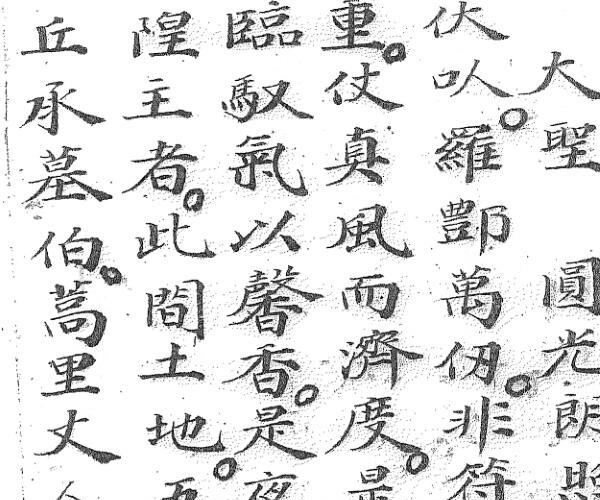 大聖 圓光朗照
伏㕥。羅酆萬仞。非符
重。仗真風而濟度。是
臨馭氣以馨香。是夜
隍主者。此間土地。五
丘承墓伯。蒿里丈